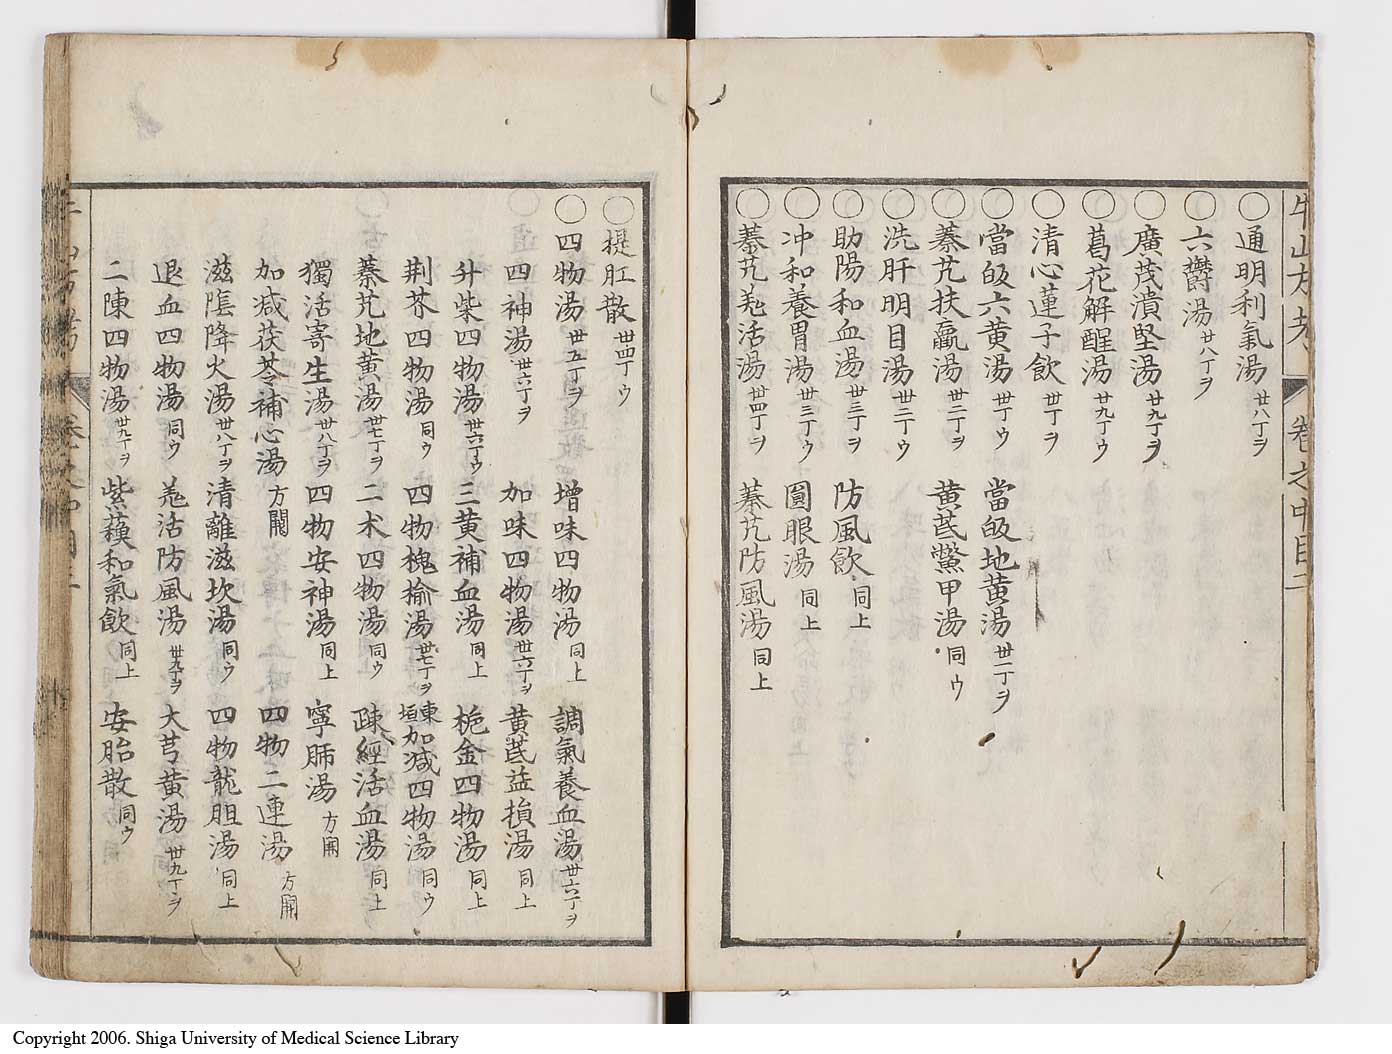 牛山方考　卷之中目二
○通明利氣湯 廿八丁ヲ
○六欝湯 廿八丁ヲ
○廣茂潰堅湯 廿九丁ヲ
○葛花解醒湯 廿九丁ウ
○清心蓮子飲 卅丁ヲ
○當皈六黄湯 卅丁ウ　當皈地黄湯 卅一丁ヲ
○蓁艽扶羸湯 卅二丁ヲ　黄芪鱉甲湯 同ウ
○洗肝明目湯 卅二丁ウ
○助陽和血湯 卅三丁ヲ　防風飲 同上
○冲和養胃湯 卅三丁ウ　圓眼湯 同上
○蓁艽羗活湯 卅四丁ヲ　蓁艽防風湯 同上
○提肛散 卅四丁ウ
○四物湯 卅五丁ヲ　增味四物湯 同上　調氣養血湯 卅六丁ヲ
四神湯 卅六丁ヲ　加味四物湯 卅六丁ヲ　黄芪益損湯 同上
升柴四物湯 卅六丁ウ　三黄補血湯 同上　梔金四物湯 同上
荆芥四物湯 同ウ　四物槐揄湯 卅七丁ヲ　東垣加減四物湯 同ウ
蓁艽地黄湯 卅七丁ヲ　二术四物湯 同ウ　疎經活血湯 同上
獨活寄生湯 卅八丁ヲ　四物安神湯 同上　寧肺湯 方闕
加减茯苓補心湯 方闕　四物二連湯 方闕
滋隂降火湯 卅八丁ヲ　清離滋坎湯 同ウ　四物龍胆湯 同上
退血四物湯 同ウ　羗活防風湯 卅九丁ヲ　大芎黄湯 卅九丁ヲ
二陳四物湯 卅九丁ヲ　紫蘓和氣飲 同上　安胎散 同ウ
Copyright 2006. Shiga University of Medical Science Library